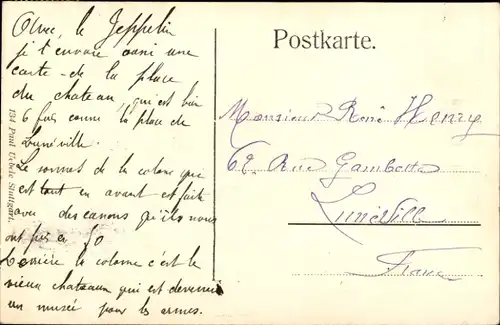 Avec, le Zeppelin
je t'envoie aussi une
carte de la place
du chateau, qui est bien
6 fois comme la place de
Lunéville.
Le sommet de la colone que
est tout en avant est faite
avec des canons qu'ils nous
ont pris en 70
Derrière la colome c'est le
vieux chateaux qui est devenu
un musée pour les armes.
134 Paul Uebele Stuttgart.
Postkarte.
Monsieur René Henry
68, Rue Gambetta
Lunéville
France